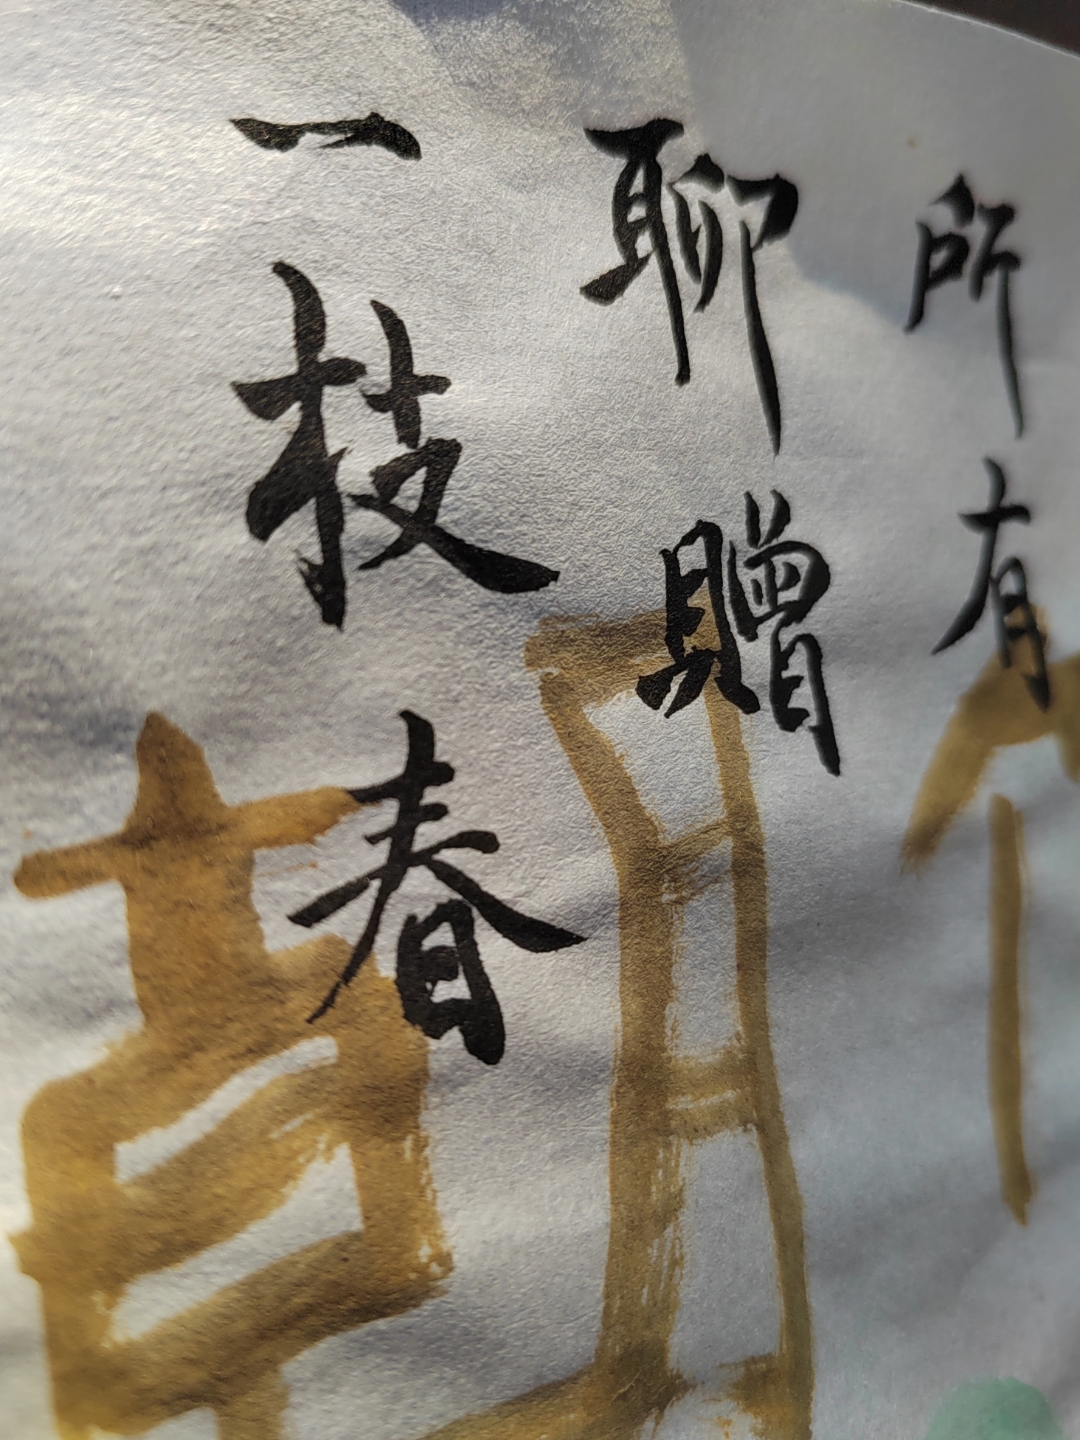 所有
聊贈
一枝春
朝